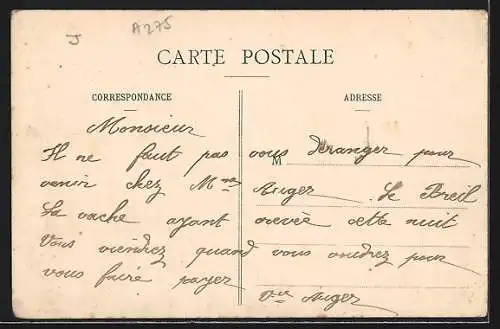 J A275
CARTE POSTALE
CORRESPONDANCE ADRESSE
Monsieur
Il ne faut pas vous déranger pour
M
venir chez Mme Auger Le Breil
Sa vache ayant crevée cette nuit
Vous viendrez quand vous voudrez pour
vous faire payer
Vve Auger